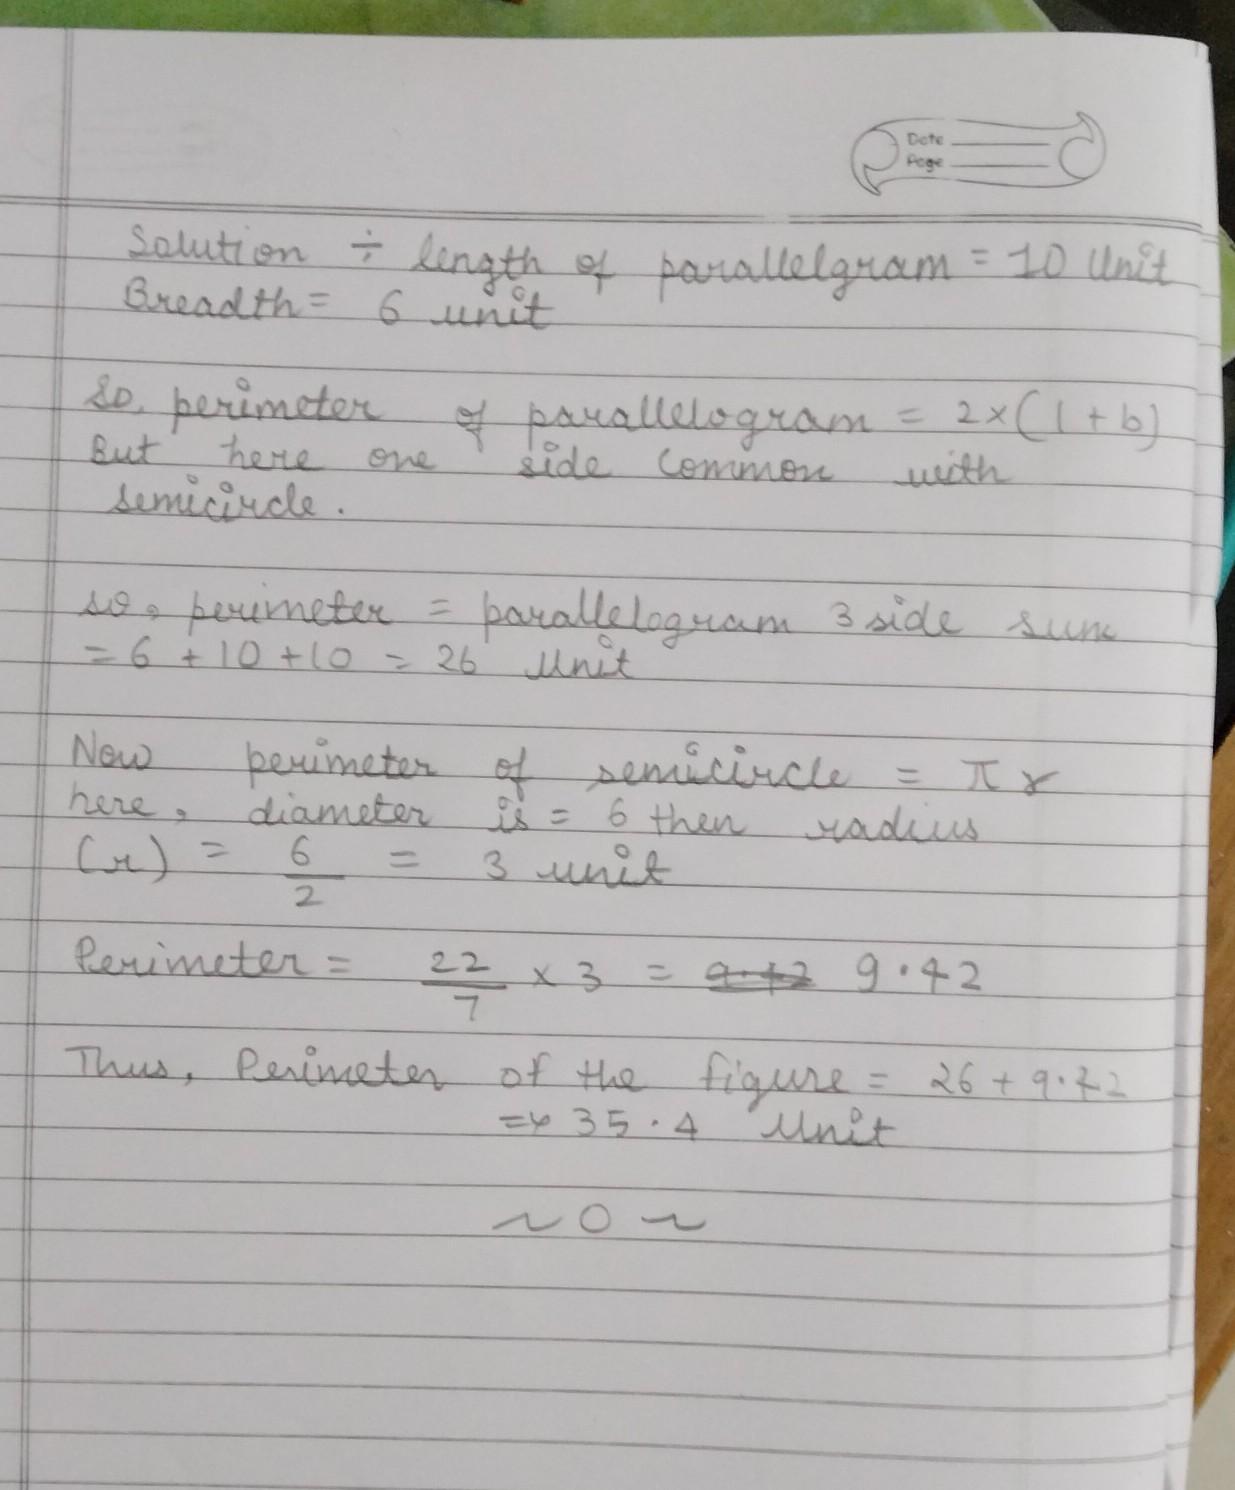 Date
Page
Solution ÷ length of parallelgram = 10 Unit
Breadth = 6 unit
so, perimeter of parallelogram = 2×(l+b)
But here one side common with
semicircle.
so, perimeter = parallelogram 3 side sum
= 6 + 10 + 10 = 26 Unit
Now perimeter of semicircle = πr
here, diameter is = 6 then radius
(r) = 6/2 = 3 unit
Perimeter = 22/7 × 3 = 9.42
Thus, Perimeter of the figure = 26 + 9.42
= 35.4 Unit
~0~